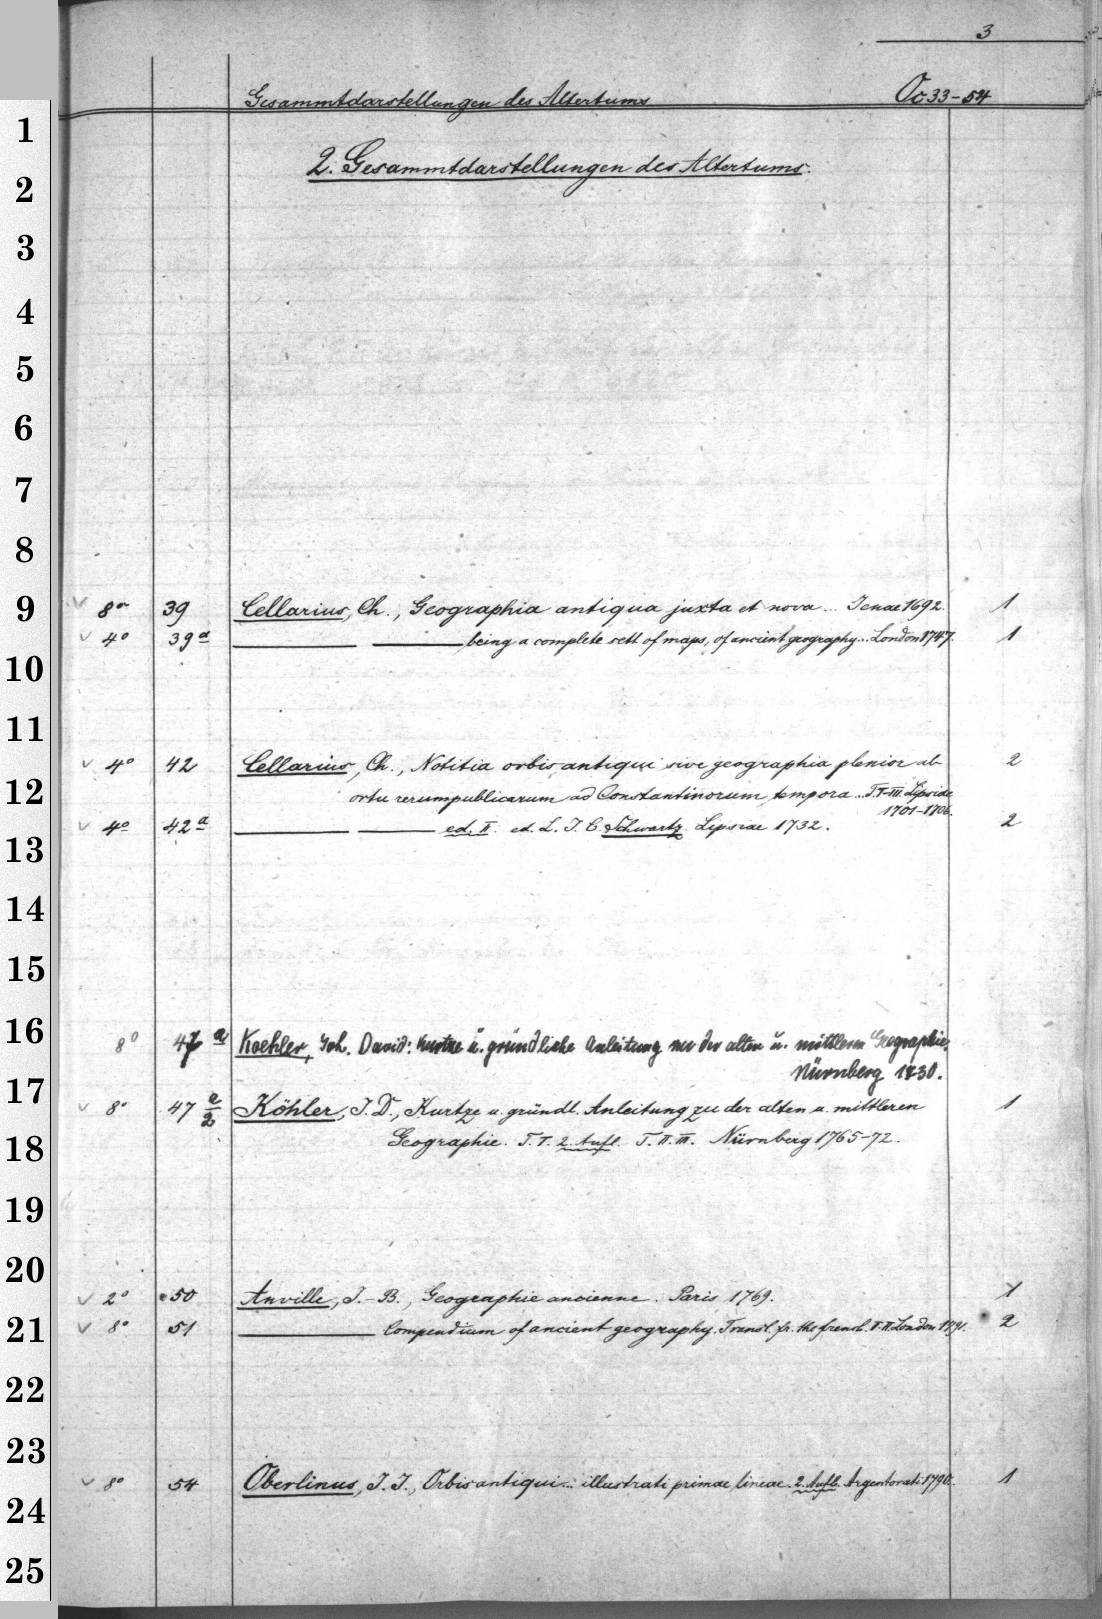 3
Gesammtdarstellungen des Altertums Oc 33-54
2. Gesammtdarstellungen des Altertums.
1
2
3
4
5
6
7
8
9
8° 39 Cellarius, Ch., Geographia antiqua juxta et nova... Jenae 1692. 1
4° 39a being a complete sett of maps, of ancient geography... London 1747. 1
10
11
4° 42 Cellarius, Ch., Notitia orbis antiqui sive geographia plenior ab 2
12
ortu rerumpublicarum ad Constantinorum tempora... T. I-III. Lipsiae
1701-1706.
4° 42a ed. II. ed. L. J. C. Schwartz. Lipsiae 1732. 2
13
14
15
16
8° 47 a Koehler, Joh. David: Kurtze u. gründliche Anleitung zu der alten u. mittlern Geographie.
Nürnberg 1730.
17
8° 47 a/2 Köhler, J. D., Kurtze u. gründl. Anleitung zu der alten u. mittleren 1
Geographie. T. I. 2. Aufl. T. II. III. Nürnberg 1765-72.
18
19
20
2° 50 Anville, J.-B., Geographie ancienne. Paris 1769. 1
8° 51 Compendium of ancient geography. Transl. fr. the french. I. II. London 1791. 2
21
22
23
8° 54 Oberlinus, J. J., Orbis antiqui... illustrati primae lineae. 2. Aufl. Argentorati 1790. 1
24
25